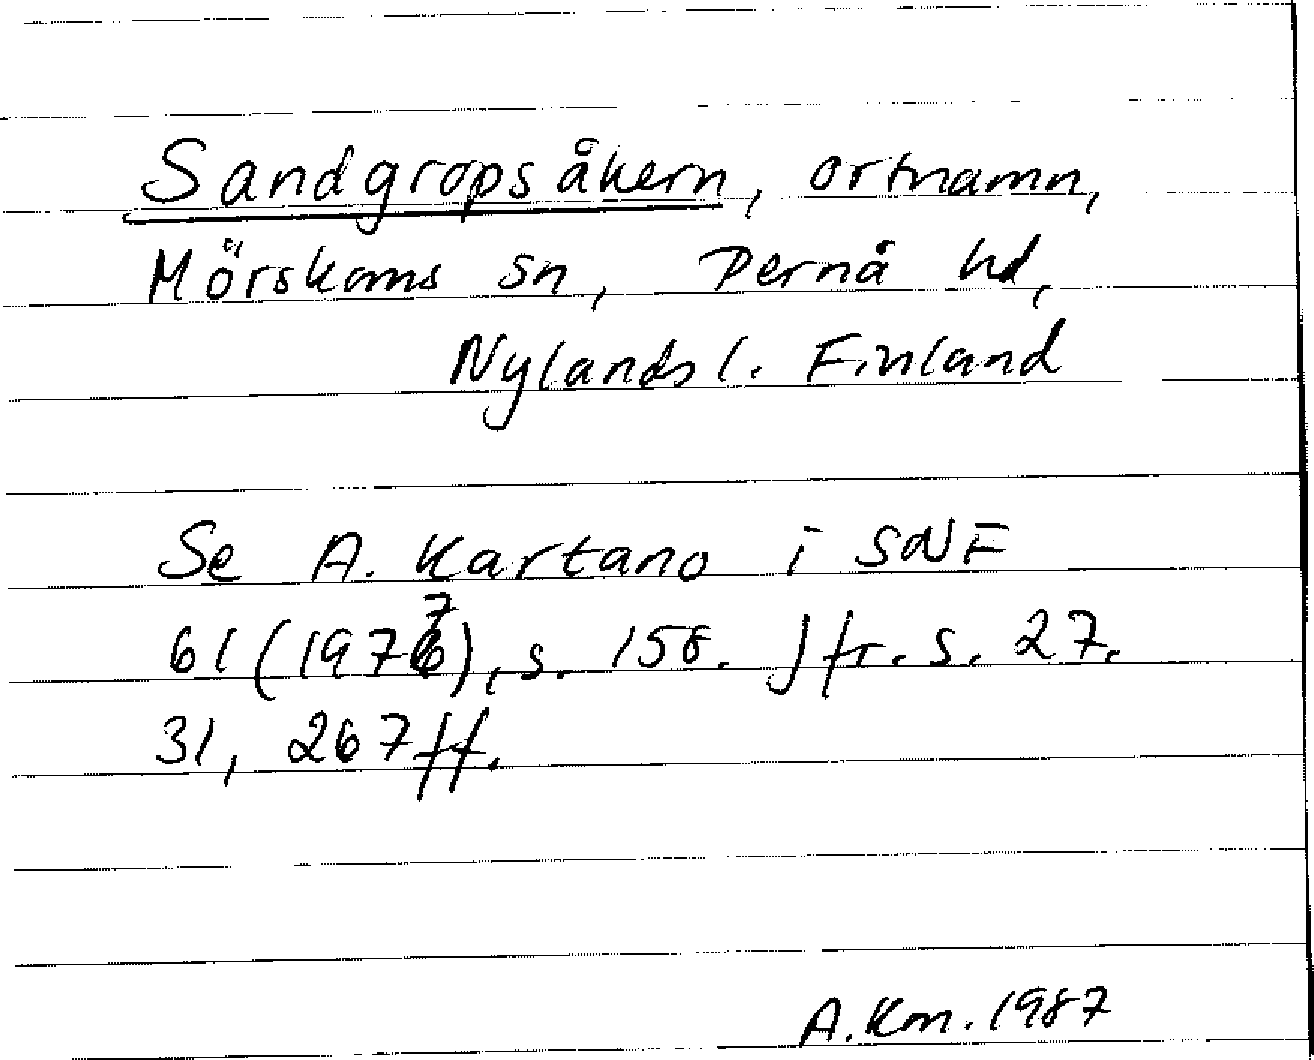 Sandgropsåkern, ortnamn,
Mörskoms sn, Pernå hd,
Nylands l. Finland
Se A. Kartano i SNF
61 (1977), s. 158. Jfr. s. 27.
31, 267 ff.
A. Km. 1987